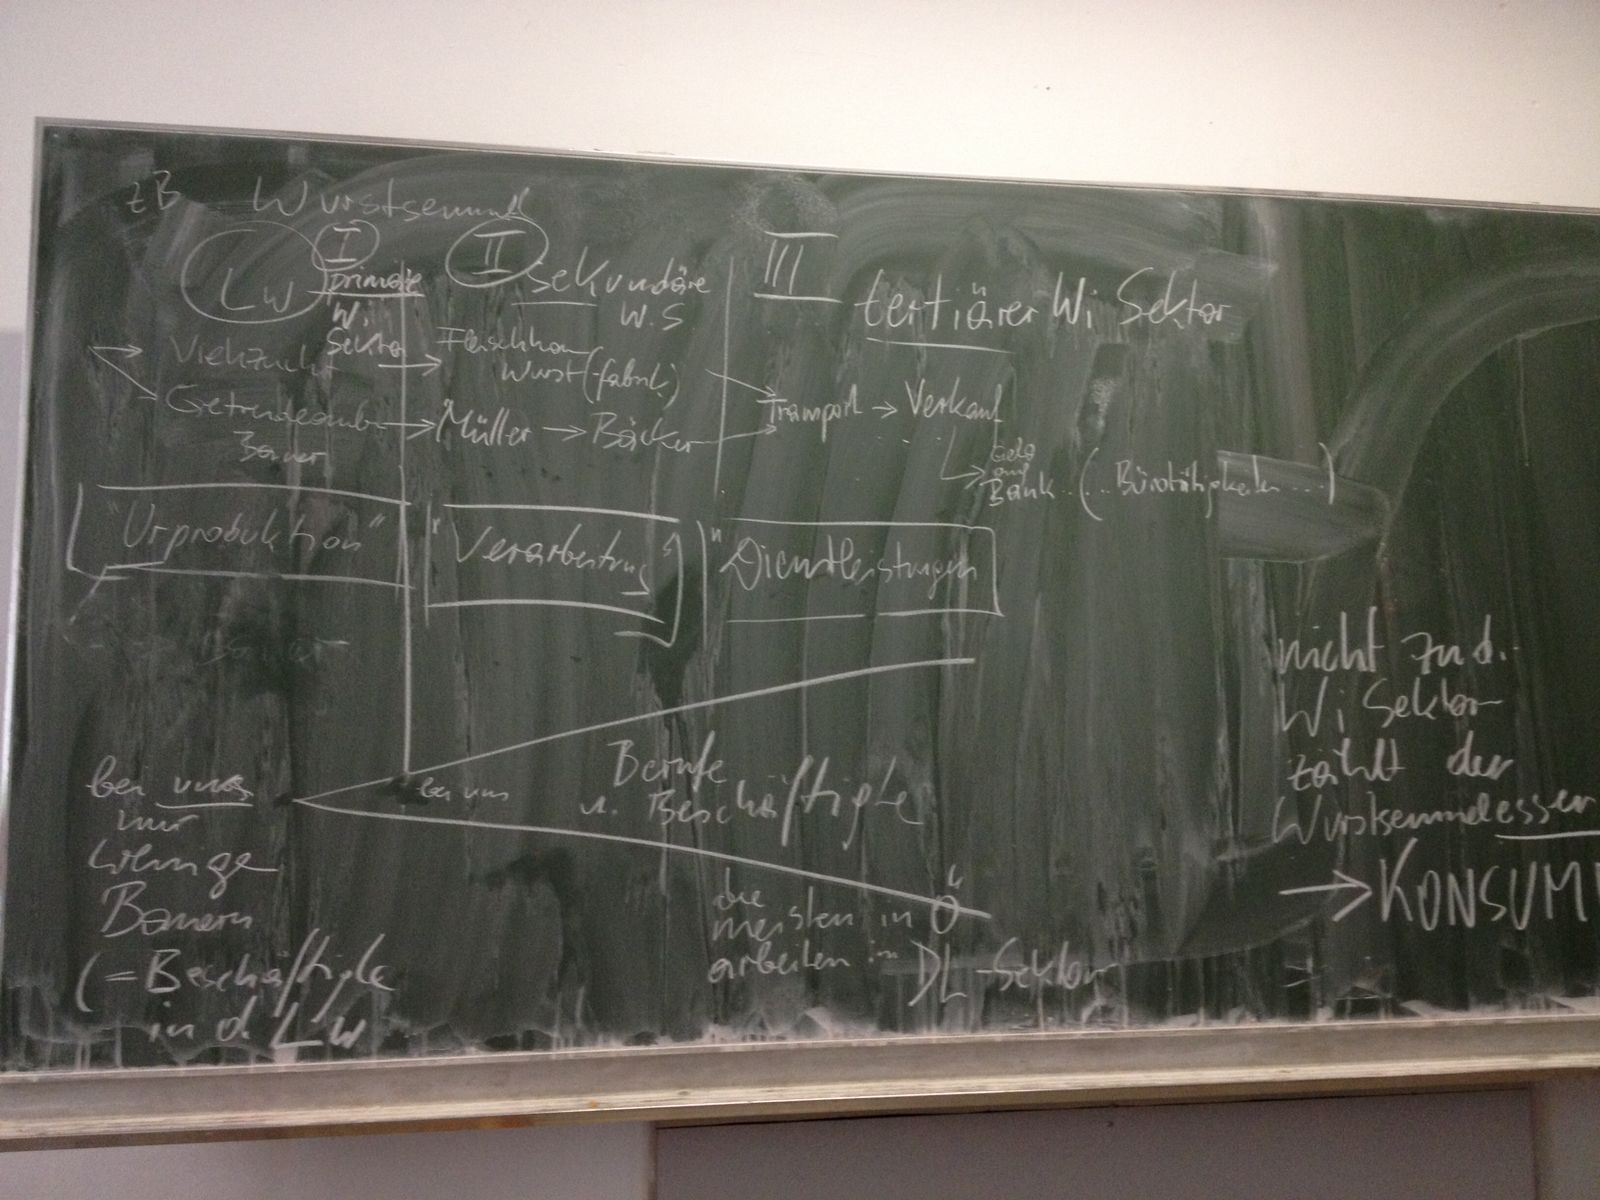 zB Wurstsemmel
LW
I
primäre
Wi
Sektor
II
sekundäre
W.S.
III
tertiärer Wi Sektor
Viehzucht
Getreideanbau
Bauer
Fleischhau
Wurst(-fabrik)
Müller → Bäcker
Transport → Verkauf
Geld
auf
Bank (... Bürotätigkeiten ...)
"Urproduktion"
"Verarbeitung"
"Dienstleistungen"
Bauer
bei uns
nur
wenige
Bauern
(= Beschäftigte
in d. LW
bei uns
Berufe
u. Beschäftigte
die
meisten in Ö
arbeiten in DL-Sektor
nicht zu d.
Wi Sektor
zählt der
Wurstsemmelesser
→ KONSUM